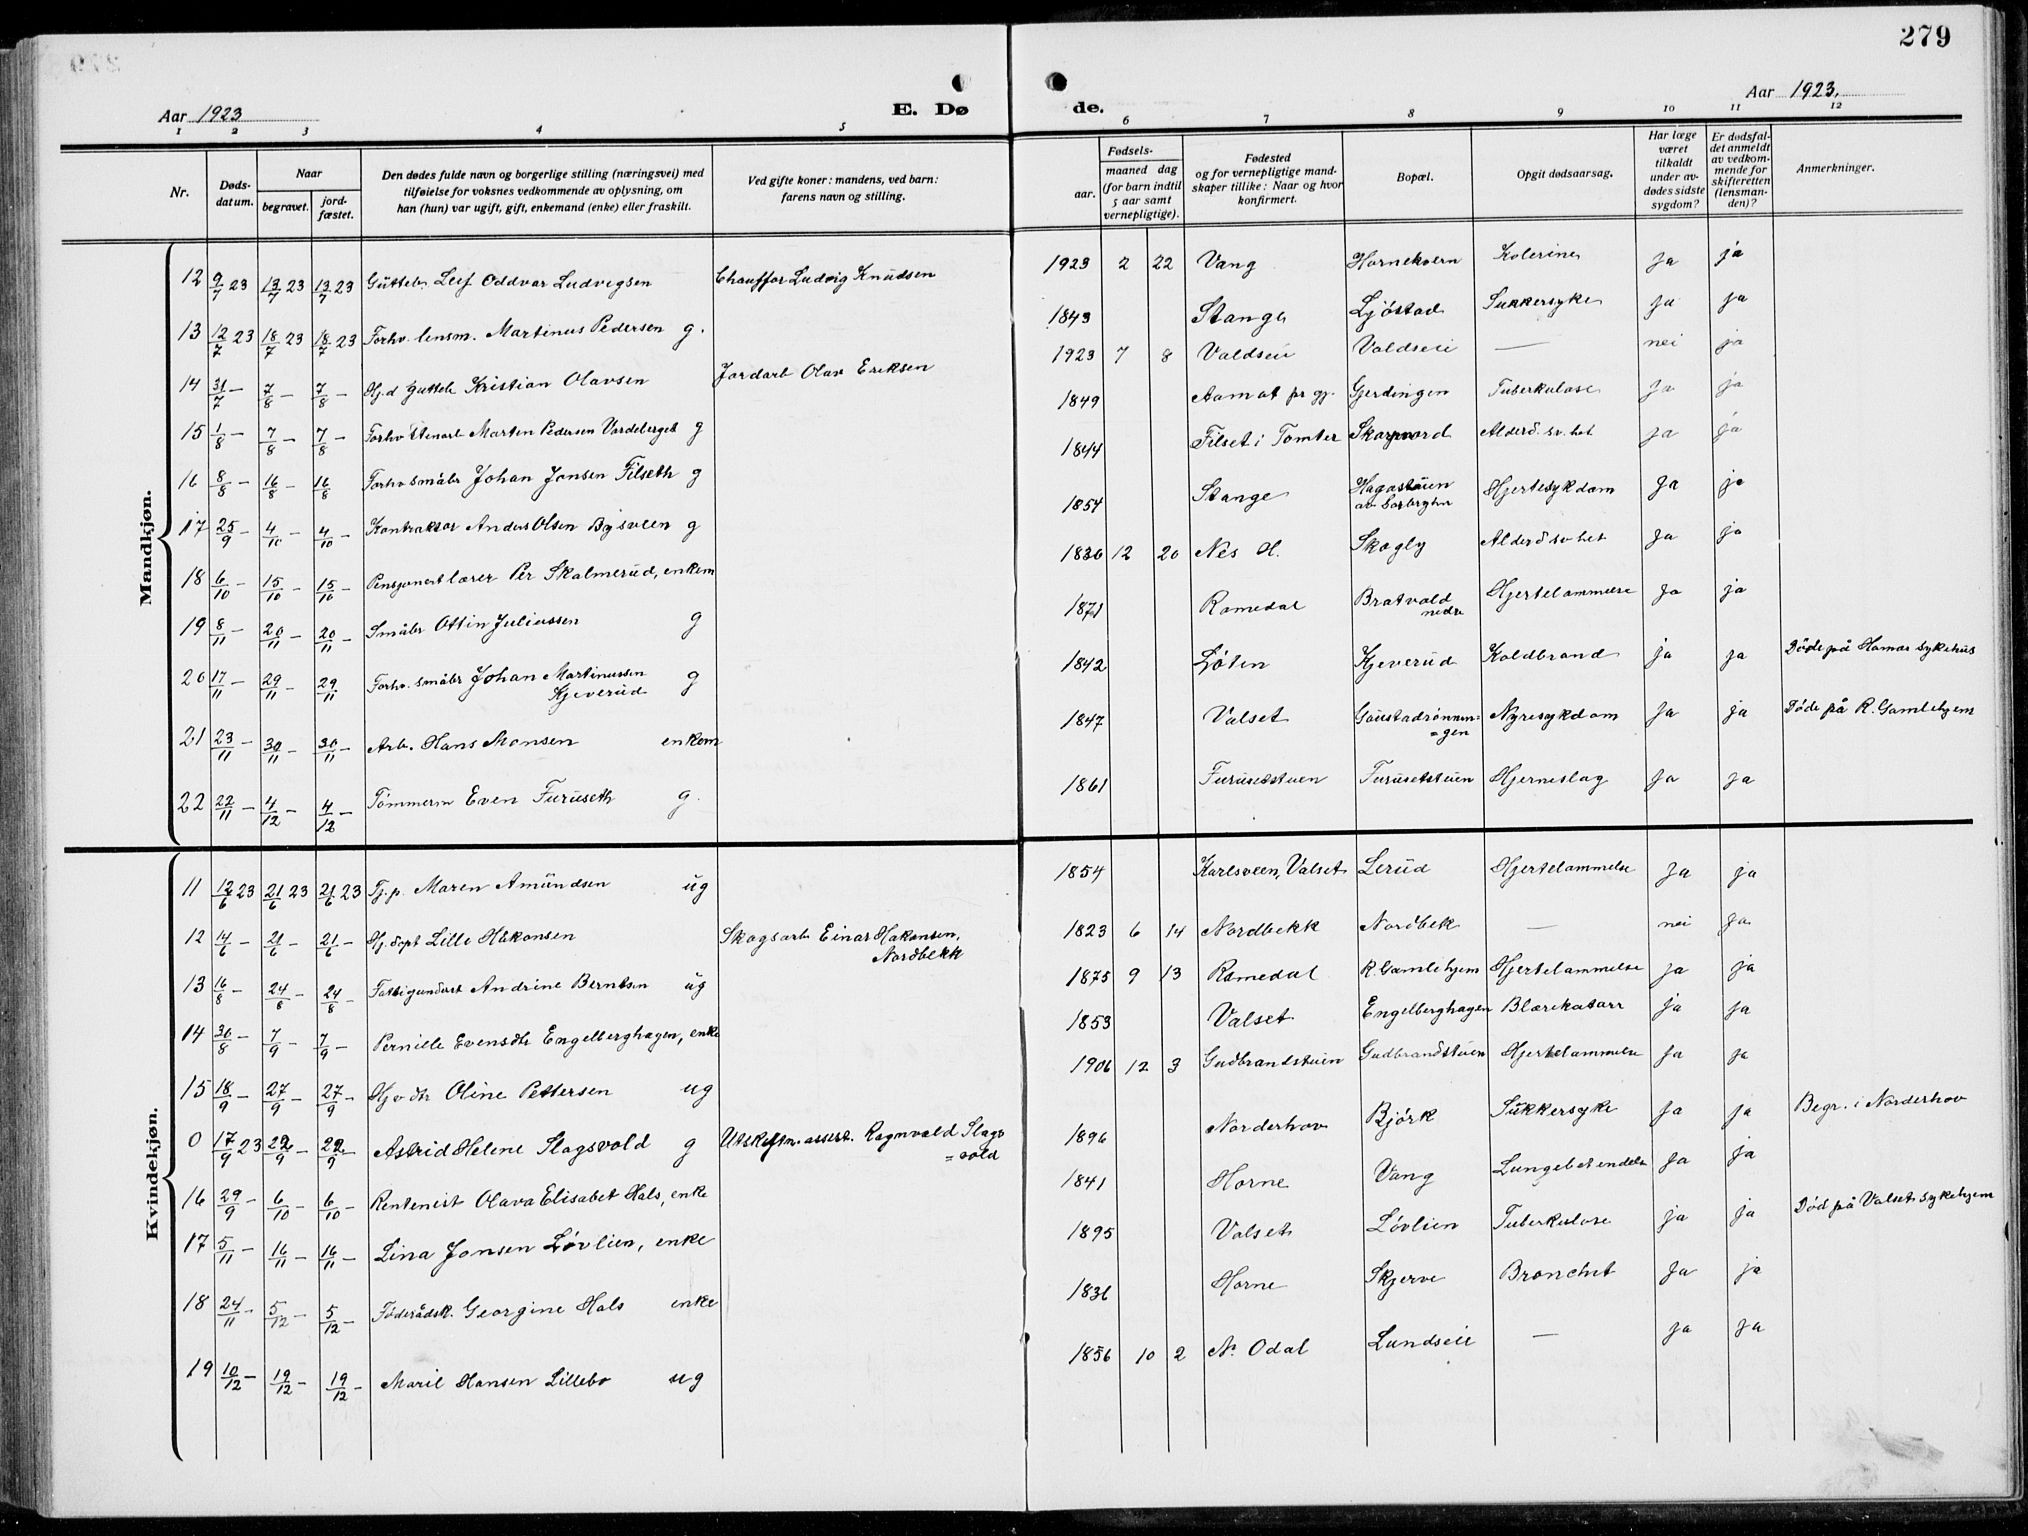 279
Aar 1923
E. Dø
de.
Aar 1923.
1 2 3 4 5 6 7 8 9 10 11 12
Nr.
Døds-
datum.
Naar
begravet.
jord-
fæstet.
Den dødes fulde navn og borgerlige stilling (næringsvei) med
tilføielse for voksnes vedkommende av oplysning, om
han (hun) var ugift, gift, enkemand (enke) eller fraskilt.
Ved gifte koner: mandens, ved barn:
farens navn og stilling.
Fødsels-
aar.
maaned dag
(for barn indtil
5 aar samt
vernepligtige).
Fødested
og for vernepligtige mand-
skaper tillike: Naar og hvor
konfirmert.
Bopæl.
Opgit dødsaarsag.
Har læge
været
tilkaldt
under av-
dødes sidste
sygdom?
Er dødsfal-
det anmeldt
av vedkom-
mende for
skifteretten
(lensman-
den)?
Anmerkninger.
Mandkjøn.
12 9/7 23 13/7 23 13/7 23 Gutteb. Leif Oddvar Ludvigsen Chauffør Ludvig Knudsen 1923 2 22 Vang Hornekvern Kolerine ja ja
13 12/7 23 18/7 23 18/7 23 Forhv. lensm. Martinus Pedersen g. 1843 Stange Ljøstad Sukkersyke ja ja
14 31/7 – 7/8 – 7/8 – Hj.d gutteb Kristian Olavsen Jordarb Olav Eriksen 1923 7 8 Valdseie Valdseie — nei ja
15 1/8 – 7/8 – 7/8 – Forhv Stenarb Marten Pedersen Vardeberget g 1849 Aamot pr gj. Gjerdingen Tuberkulose ja ja
16 8/8 – 16/8 – 16/8 Forhv småbr Johan Jonsen Filseth g 1844 Filset i Tomter Skarpnord Alderd.sv.het ja ja
17 25/9 – 4/10 – 4/10 – Kontraktør Anders Olsen Bysveen g 1854 Stange Hagastuen
av Sorberghn Hjertesykdom ja ja
18 6/10 – 15/10 – 15/10 – Pensjonert lærer Per Skalmerud, enkem 1836 12 20 Nes H. Skogly Alderd.sv.het ja ja
19 8/11 – 20/11 – 20/11 – Småbr Ottin Juliussen g 1871 Romedal Bratvold
nedre Hjertelammelse ja ja
20 17/11 – 29/11 – 29/11 Forhv. småbr Johan Martinussen
Kjeverud g 1842 Løten Kjeverud Koldbrand ja ja Døde på Hamar sykehus
21 23/11 – 30/11 – 30/11 – Arb. Hans Monsen enkem 1847 Valset Gaustadrønnin=
=gen Nyresykdom ja ja Døde på R. Gamlehjem
22 22/11 – 4/12 – 4/12 – Tømmerm Even Furuseth g. 1861 Furusetstuen Furusetstuen Hjerneslag ja ja
Kvindekjøn.
11 12/6 23 21/6 23 21/6 23 Tj.p. Maren Amundsen ug 1854 Karlsveen, Valset Lerud Hjertelammelse ja ja
12 14/6 – 21/6 – 21/6 – Hj.døpt Lille Håkonsen Skogsarb Einar Håkonsen,
Nordbekk 1823 6 14 Nordbekk Nordbek — nei ja
13 16/8 – 24/8 – 24/8 – Fattigunderst Andrine Berntsen ug 1875 9 13 Romedal R. Gamlehjem Hjertelammelse ja ja
14 30/8 – 7/9 – 7/9 – Pernille Evensdtr Engelberghagen, enke 1853 Valset Engelberghagen Blærekatarr ja ja
15 18/9 – 27/9 – 27/9 – Hjv dtr Oline Pettersen ug 1906 12 3 Gudbrandstuen Gudbrandstuen Hjertelammelse ja ja
0 17/9 23 22/9 – 22/9 – Astrid Helene Slagsvold g Utskiftn.assist. Ragnvald Slags
=vold 1896 Norderhov Bjørk Sukkersyke ja ja Begr. i Norderhov
16 29/9 – 6/10 – 6/10 – Rentenist Olava Elisabet Hals, enke 1841 Horne Vang Lungebetendelse ja ja
17 5/11 – 16/11 – 16/11 – Lina Jonsen Løvlien, enke 1895 Valset Løvlien Tuberkulose ja ja Død på Valset sykehjem
18 24/11 – 5/12 – 5/12 – Føderådsk. Georgine Hals enke 1836 Horne Skjerve Bronchit ja ja
19 10/12 – 19/12 – 19/12 – Maril Hansen Lillebo ug 1856 10 2 N. Odal Lundseie — ja ja